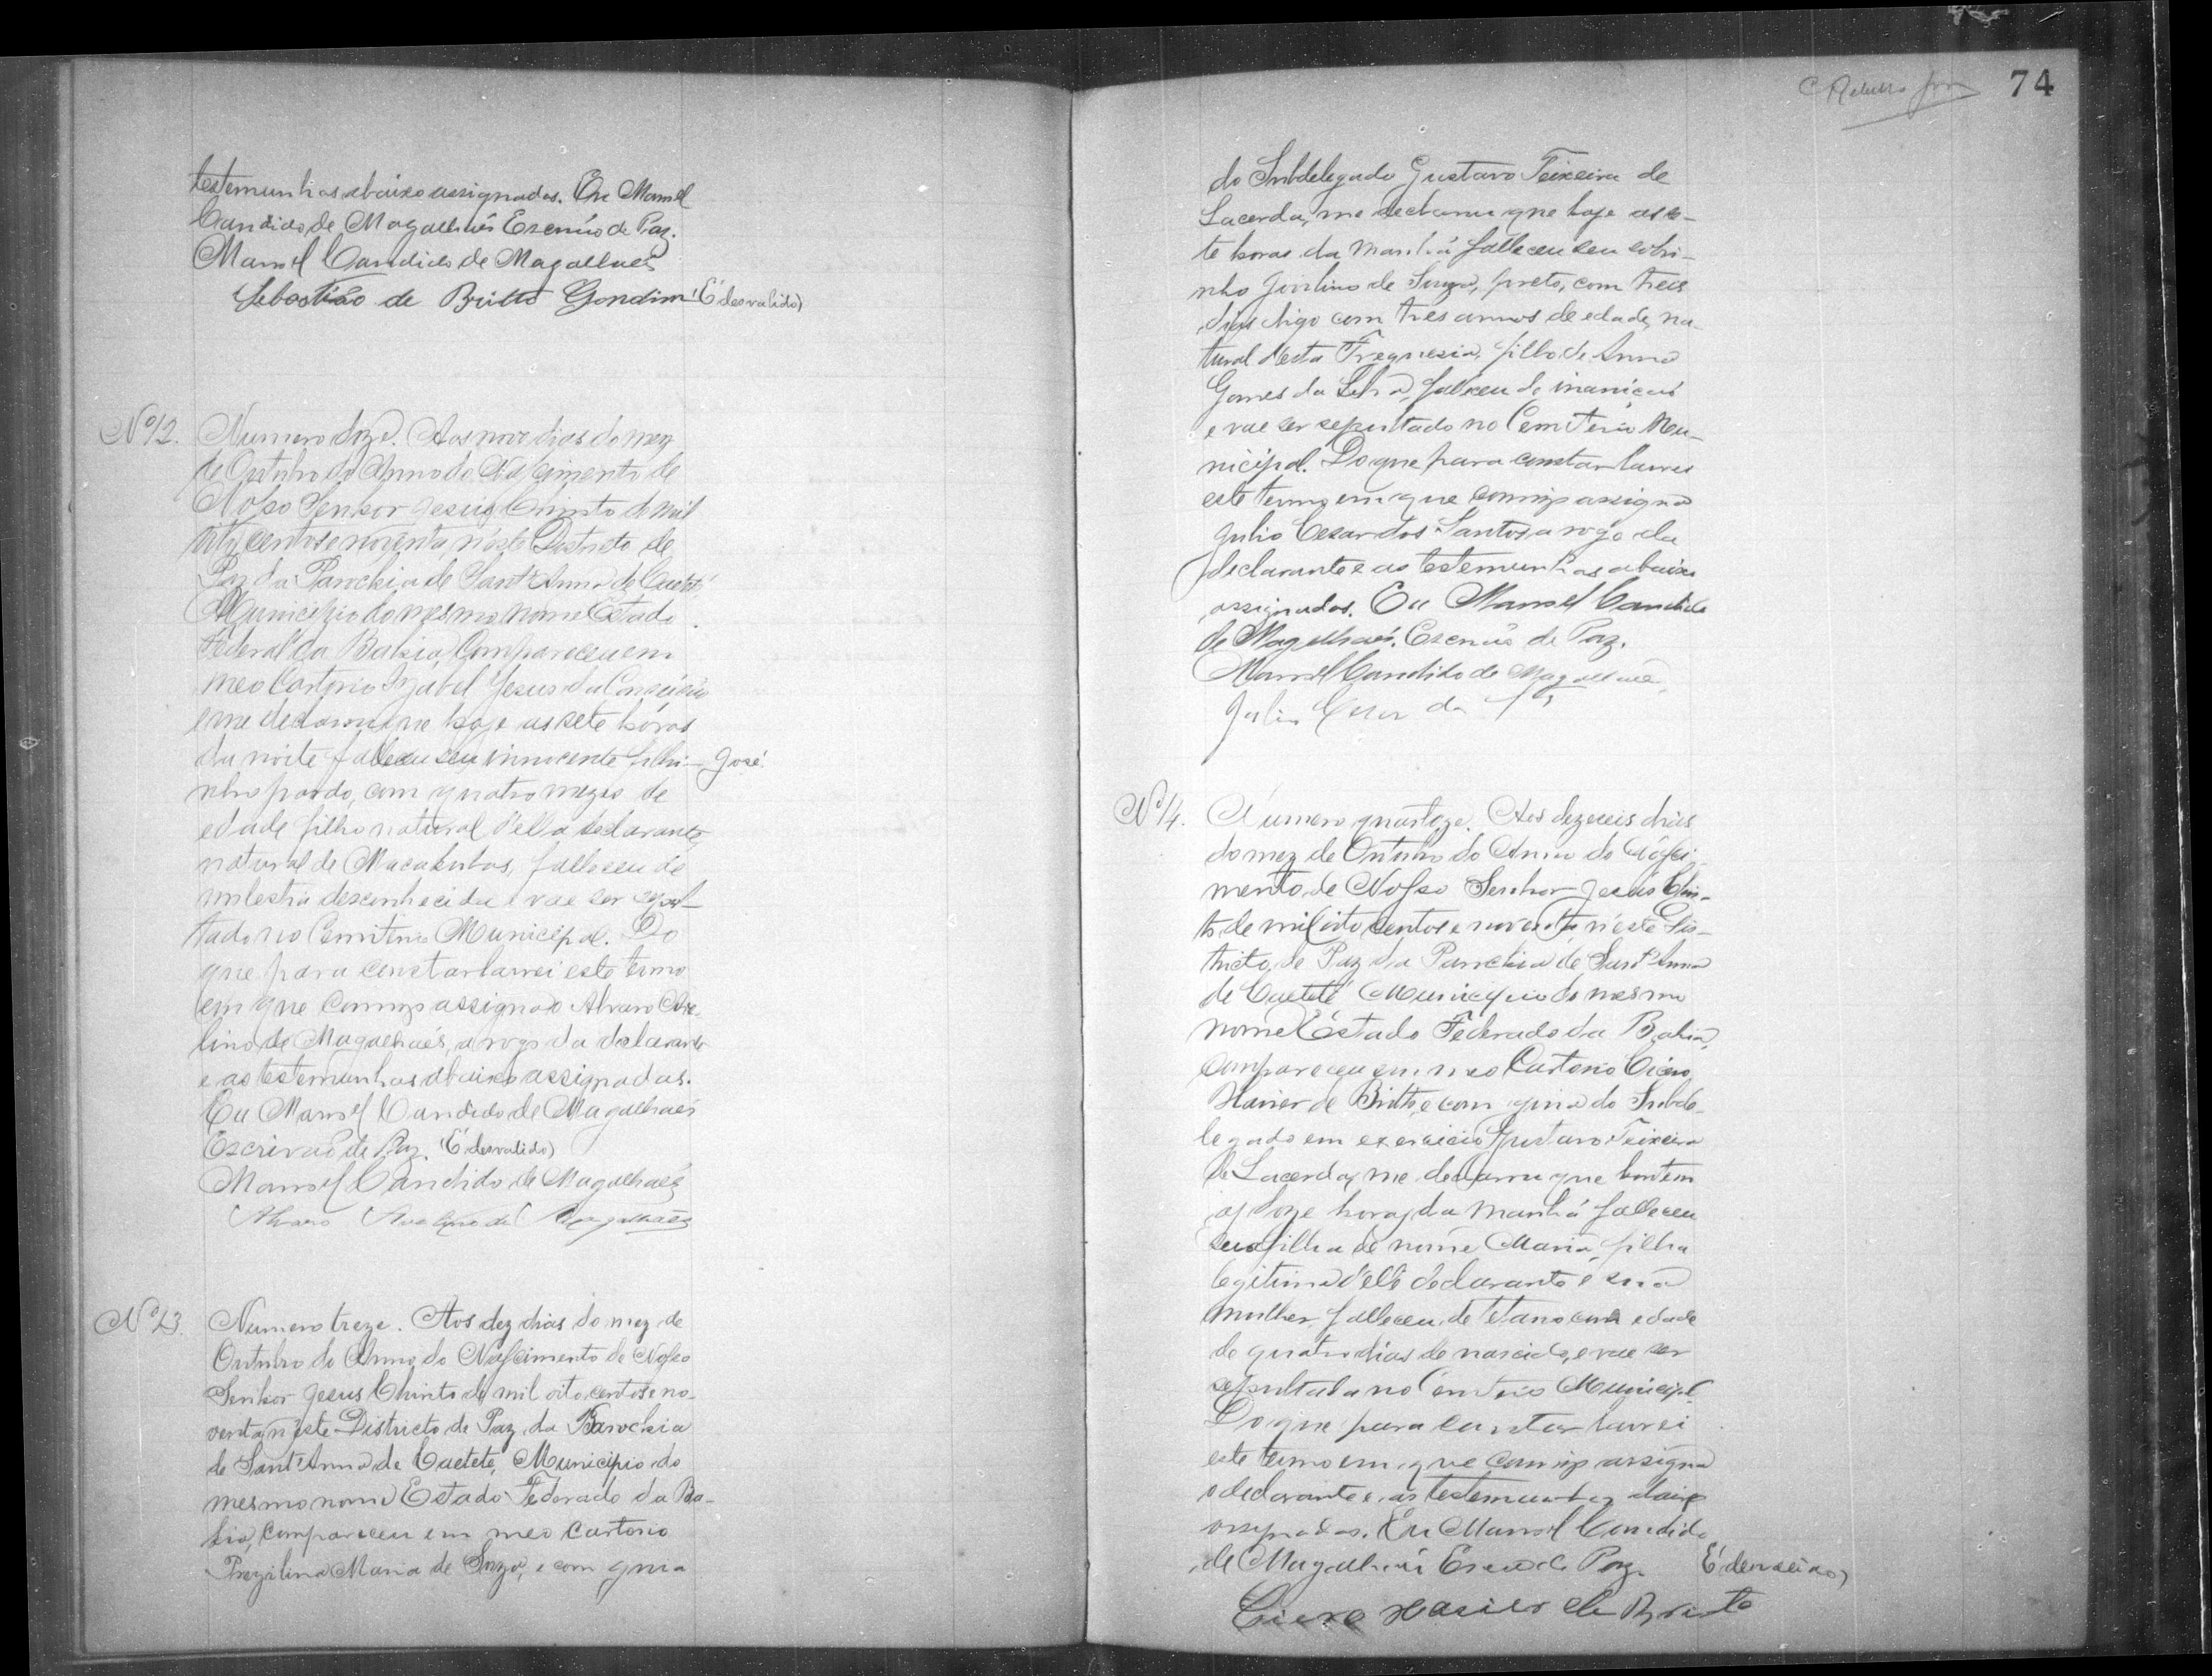 testemunhas abaixo assignadas. Eu Manoel
Candido de Magalhães Escrivão de Paz.
Manoel Candido de Magalhães
Sebastião de Britto Gondim (É desvalido)
Nº 12. Numero doze. Aos nove dias do mez
de Outubro do Anno do Nascimento de
Nosso Senhor Jesus Christo de mil
oito centos e noventa, n'este Districto de
Paz da Parochia de Sant'Anna de Caeteté
Municipio do mesmo nome Estado
Federal da Bahia, Compareceu em
meo Cartorio Izabel Jesus da Conceição
e me declarou que hoje as sete horas
da noite falleceu seu innocente filhi- José.
nho pardo, com quatro mezes de
edade filho natural d'ella declarante,
natural de Macahubas, falleceu de
molestia desconhecida e vae ser sepul-
tado no Cemiterio Municipal. Do
que para constar lavrei este termo
em que comigo assignao Alvaro Ave-
lino de Magalhaés, a rogo da declarante
e as testemunhas abaixo assignadas.
Eu Manoel Candido de Magalhaes
Escrivaõ de Paz. (É desvalido)
Manoel Candido de Magalhaés
Alvaro Avelino de Magalhães
Nº 13. Numero treze. Aos dez dias do mez de
Outubro do Anno do Nascimento de Nosso
Senhor Jesus Christo de mil oito centos e no-
venta, n'este Districto de Paz da Parochia
de Sant'Anna de Caeteté, Municipio do
mesmo nome Estado Federado da Ba-
hia, compareceu em meo Cartorio
Maria de Souza, e com guia
74
do Subdelegado Gustavo Teixeira de
Lacerda, me declarou que hoje as se-
te horas da manhã falleceu seu sobri-
nho de Souza, preto, com tres
dias digo com tres annos de edade, na-
tural desta Freguesia, filho de Anna
Gomes da Silva, falleceu de inanição
e vae ser sepultado no Cemiterio Mu-
nicipal. Do que para constar lavrei
este termo em que comigo assigna
Julio Cesar dos Santos a rogo da
declarante e as testemunhas abaixo
assignadas. Eu Manoel Candido
de Magalhaés. Escrivão de Paz.
Manoel Candido de Magalhaes
Julio Cesar dos
Nº 14. Numero quatorze. Aos dezeseis dias
do mez de Outubro do Anno do Nasci-
mento de Nosso Senhor Jesus Chris-
to de mil oito centos e noventa, n'este Dis-
tricto de Paz da Parochia de Sant'Anna
de Caeteté Municipio do mesmo
nome Estado Federado da Bahia,
compareceu em meo Cartorio Cicero
Xavier de Britto, e com guia do Subde-
legado em exercicio Gustavo Teixeira
de Lacerda, me declarou que hontem
as doze horas da manhã falleceu
sua filha de nome Maria, filha
legitima d'elle declarante e sua
mulher, falleceu de tetano com edade
de quatro dias de nascida, e vae ser
sepultada no Cemiterio Municipal.
Do que para constar lavrei
este termo em que comigo assigna
o declarante e as testemunhas abaixo
assignadas. Eu Manoel Candido
de Magalhaes Escrivão de Paz. É desvalido)
Cicero Xavier de Britto